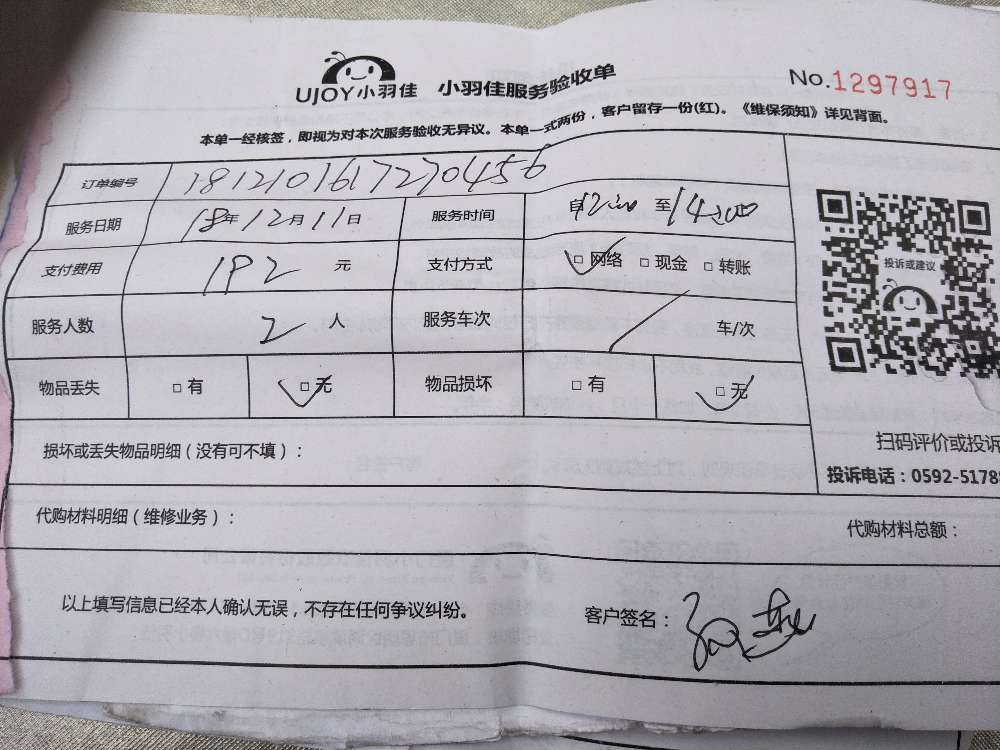 UJOY小羽佳 小羽佳服务验收单 No.1297917
本单一经核签，即视为对本次服务验收无异议。本单一式两份，客户留存一份(红)。《维保须知》详见背面。
订单编号 1812101617270456
服务日期 18年12月11日 服务时间 自12:00 至14:00
支付费用 192 元 支付方式 □网络 □现金 □转账
服务人数 2 人 服务车次 / 车/次
物品丢失 □有 □无 物品损坏 □有 □无
投诉或建议
扫码评价或投诉
投诉电话：0592-5178
损坏或丢失物品明细（没有可不填）：
代购材料明细（维修业务）： 代购材料总额：
以上填写信息已经本人确认无误，不存在任何争议纠纷。 客户签名：